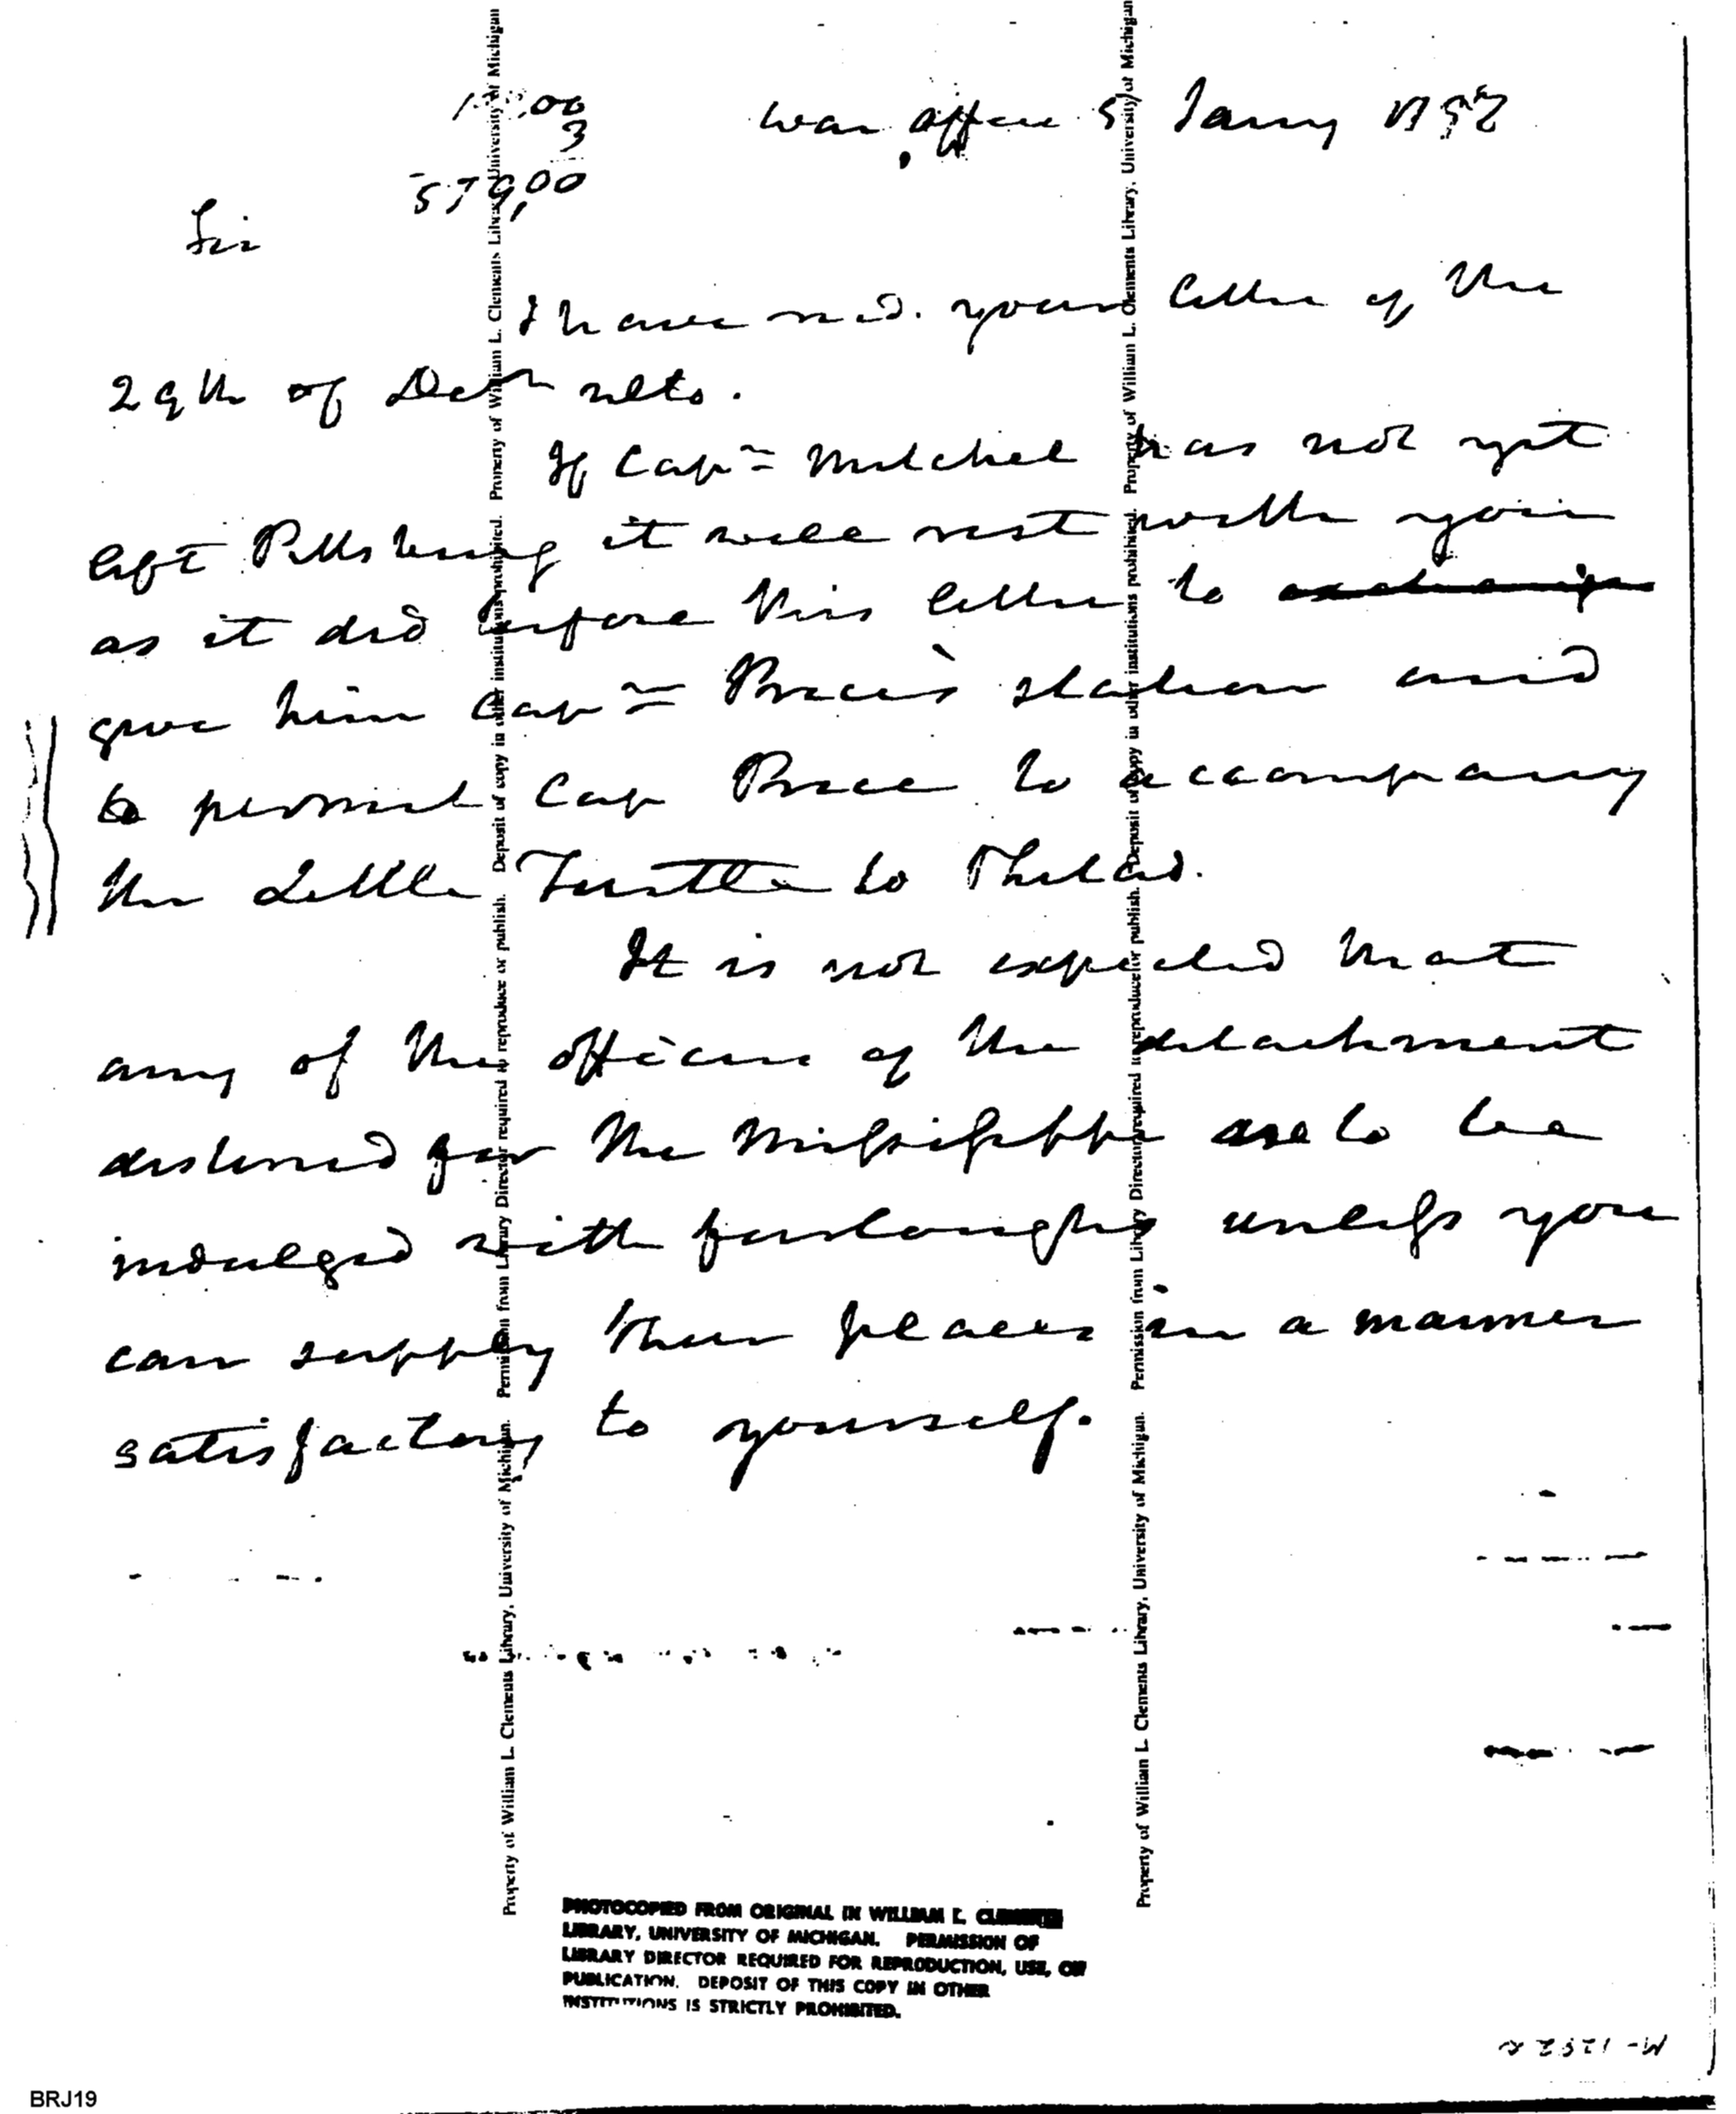 War Office 5 Jany 1798
3
579,00
Sir
I have recd. your letter of the
29th of Decr ulto.
If Capn Mitchel has not yet
left Pittsburg it will rest with you
as it did before this letter to
give him Capn Price's station and
to permit Cap Price to accompany
the Little Turtle to Philad.
It is not expected that
any of the officers of the detachment
destined for the Missisippi are to be
indulged with furloughs unless you
can supply their places in a manner
satisfactory to yourself.
Property of William L. Clements Library, University of Michigan. Permission from Library Director required to reproduce or publish. Deposit of copy in other institutions prohibited. Property of William L. Clements Library, University of Michigan
Property of William L. Clements Library, University of Michigan. Permission from Library Director required to reproduce or publish. Deposit of copy in other institutions prohibited. Property of William L. Clements Library, University of Michigan
PHOTOCOPIED FROM ORIGINAL IN WILLIAM L. CLEMENTS
LIBRARY, UNIVERSITY OF MICHIGAN. PERMISSION OF
LIBRARY DIRECTOR REQUIRED FOR REPRODUCTION, USE, OR
PUBLICATION. DEPOSIT OF THIS COPY IN OTHER
INSTITUTIONS IS STRICTLY PROHIBITED.
BRJ19